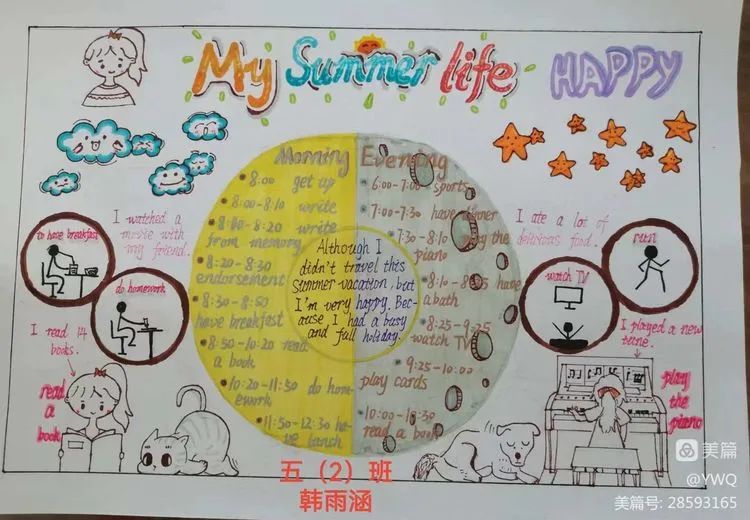 My Summer life HAPPY
Morning
8:00 get up
8:00-8:10 write
8:10-8:20 write
from memory
8:20-8:30
endorsement
8:30-8:50
have breakfast
8:50-10:20 read
a book
10:20-11:50 do hom-
ework
11:50-12:30 ha-
ve lunch
Evening
6:00-7:00 sports
7:00-7:30 have dinner
7:30-8:10 play the
piano
8:10-8:25 have
a bath
8:25-9:25
watch TV
9:25-10:00
play cards
10:00-10:30
read a book
Although I
didn't travel this
Summer vacation, but
I'm very happy. Bec-
ause I had a busy
and full holiday.
I watched a
movie with
my friend.
to have breakfast
do homework
I read 14
books.
read
a
book
I ate a lot of
delicious food.
run
watch TV
I played a new
tune.
play
the
piano
五（2）班
韩雨涵
美篇
@YWQ
美篇号: 28593165